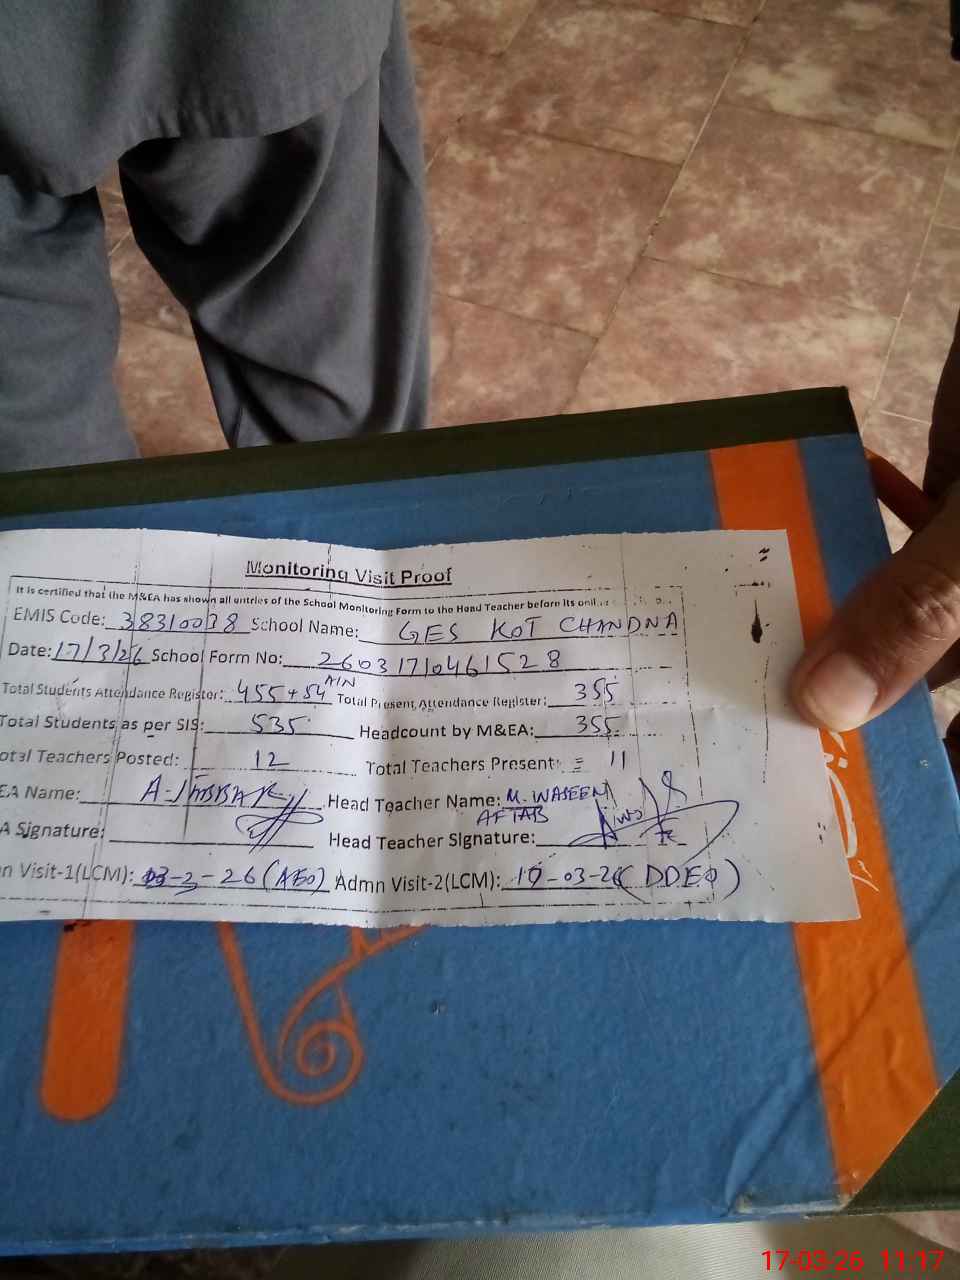 Monitoring Visit Proof
It is certified that the M&EA has shown all entries of the School Monitoring Form to the Head Teacher before its onli
EMIS Code: 38310038 School Name: GES KOT CHANDNA
Date: 17/3/26 School Form No: 2603171046 1528
Total Students Attendance Register: 455+54 AIN Total Present Attendance Register: 355
Total Students as per SIS: 535 Headcount by M&EA: 355
otal Teachers Posted: 12 Total Teachers Present: = 11
EA Name: Head Teacher Name: M. WASEEM
AFTAB
A Signature: Head Teacher Signature:
n Visit-1(LCM): -2-26 (AEO) Admn Visit-2(LCM): -03-26 (DDEO)
17-03-26 11:17